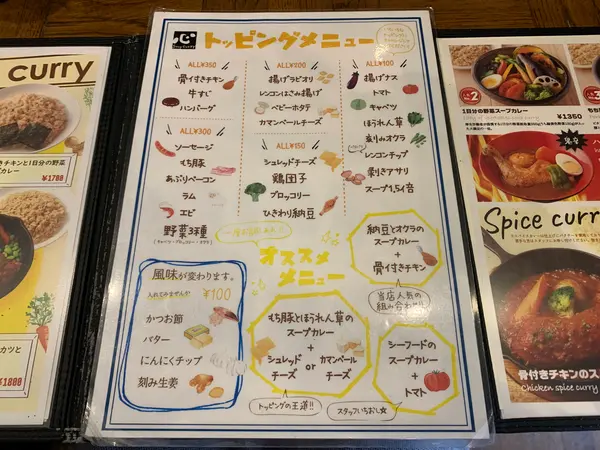 curry
¥1700
¥1800
心
Soup Curry
トッピングメニュー
ALL¥350
骨付きチキン
牛すじ
ハンバーグ
ALL¥300
ソーセージ
もち豚
あぶりベーコン
ラム
エビ
野菜3種
ALL¥200
揚げラビオリ
レンコンはさみ揚げ
ベビーホタテ
カマンベールチーズ
ALL¥150
シュレッドチーズ
鶏団子
ブロッコリー
ひきわり納豆
ALL¥100
揚げナス
トマト
キャベツ
ほうれん草
刻みオクラ
レンコンチップ
剥きアサリ
スープ1,5倍
オススメ
メニュー
納豆とオクラの
スープカレー
+
骨付きチキン
当店人気の
組み合わせ!!
風味が変わります。
入れてみませんか?
¥100
かつお節
バター
にんにくチップ
刻み生姜
もち豚とほうれん草の
スープカレー
+
シュレッド
チーズ
or
カマンベール
チーズ
トッピングの王道!!
シーフードの
スープカレー
+
トマト
スタッフいちおし☆
1日分の野菜スープカレー
¥1350
Spice curry
骨付きチキンのス
Chicken spice curry